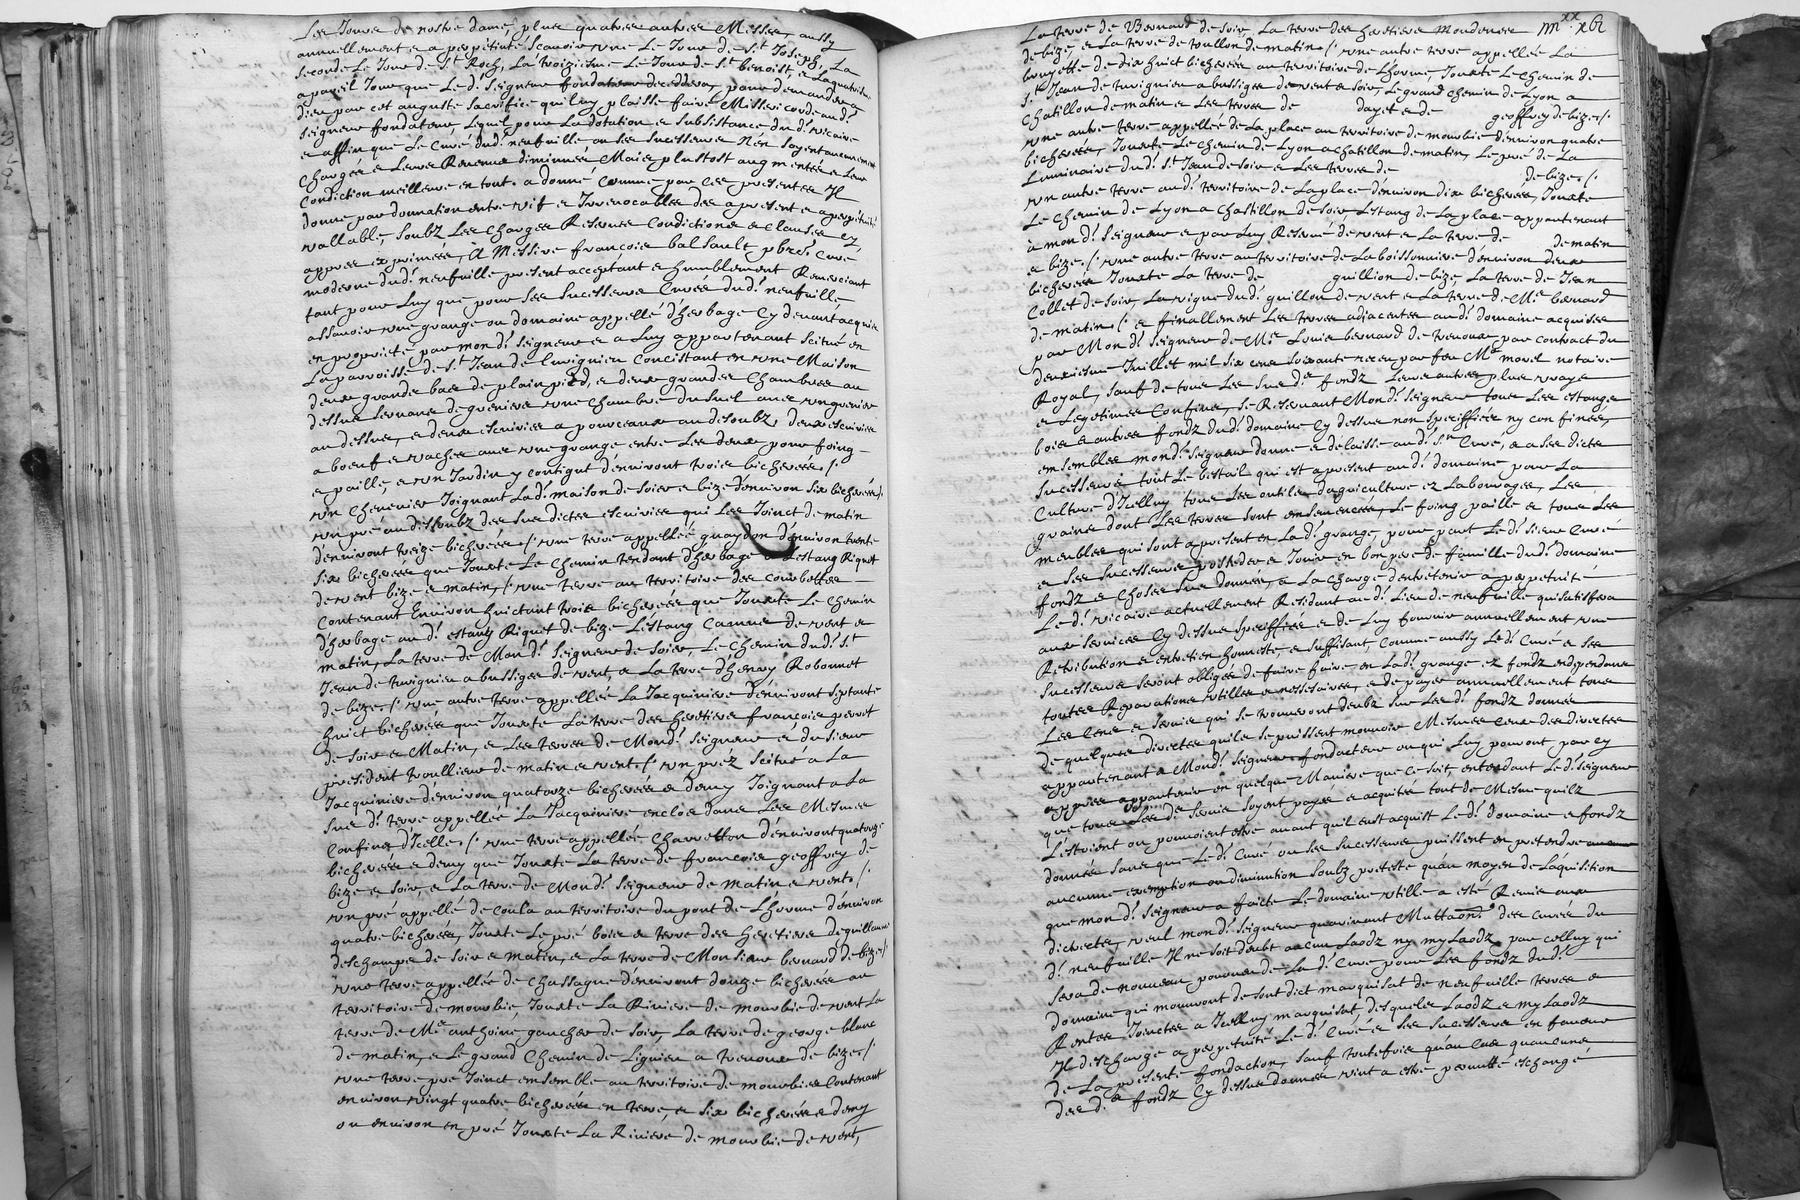 Les Jours de nostre dame, plus quatres autres Messes, aussy
annuellement & a perpetuité Scavoir une Le Jour de St Joseph, La
seconde Le Jour de St Roch, La troiziesme Le Jour de St benoist, & La quatriesme
a pareil Jour que Le d. Seigneur fondateur decedera, pour demander a
dieu par cet auguste sacrifice quil luy plaisse faire Missericorde aud.
seigneur fondateur, Lequel pour La dotation & Subsistance dud. vicaire
& affin que Le Curé dud. neufuille ou ses successeurs N'en soyent aucunement
chargés & Leurs Revenus diminues Mais plustost augmentés & Leur
condiction meilleure en tout. a donné comme par ces presentes Il
donne par donnation entre vif & Irrevocables des apresent & a perpetuité
vallable, soubz Les charges Reserves Condictions & Clauses cy
appres exprimées, A Messire françois balsault pbre Curé
moderne dud. neufuille present acceptant & humblement Remerciant
tant pour Luy que pour ses successeurs Curés dud. neufuille
assavoir une grange ou domaine appellé d'herbage cy devant acquis
en proprieté par mond. seigneur & a Luy appartenant scitué en
La parroisse de St Jean de turignieu concistant en une Maison
deux grande bas de plain pied, & deux grandes chambres au
dessus servans de greniers une chambre du suel avec un grenier
au dessus, & deux escuiries a pourceaux au desoubz, deux escuiries
a boeuf & vaches avec une grange entre Les deux pour foing
& paille, & un Jardin y contigut d'environt trois bicherées /.
un chenevier Joignant Lad. maison de soier & bize d'environ six bicherées /.
un pré au dessoubz des susdictes escuiries qui Les Joinct de matin
d'environt treize bicherées /. une terre appellée quaydon d'environ trente
six bicherées que Jouxte Le chemin tendant d'herbage a Lestang Riquet
de vent bize & matin, /. une terre au territoire des courbettes
contenant Environ huictant trois bicherées que Jouxte Le chemin
d'herbage aud. estang Riquet de bize L'estang Camus de vent &
matin, La terre de Mond. Seigneur de soier, Le chemin dud. St
Jean de turignieu a bussiges de vent, & La terre d'henry Robonnet
de bize, /. une autre terre appellée La Jacquiniere d'environt septante
huict bicherées que Jouxte La terre des heretiers françois perret
de soir & Matin, & Les terres de Mond. Seigneur & du sieur
president trollieur de matin & vent, /. un préz Scitué a La
Jacquiniere d'environ quatorze bicherées & demy Joignant a La
sus d. terre appellée La Jacquiniere enclos dans Les Mesmes
confins d'Icelle, /. une terre appellée Charretton d'environt quatorze
bicherées & demy que Jouxte La terre de françois geoffrey de
bize & soir, & La terre de Mond. Seigneur de matin & vent, /.
un pré appellé de coula au territoire du pont de Lhorme d'environ
quatre bicherées, Jouxte Le pré bois & terre des heretiers de guillaume
deschamps de soir & matin, & La terre de Monsieur bernard de bize /.
une terre appellée de chassagne d'environt douze bicherées au
territoire de mourbie, Jouxte La Riviere de mourbie de vent La
terre de Me anthoine gaucher de soir, La terre de george blanc
de matin, & Le grand chemin de Ligneu a trevoux de bize, /.
une terre pré Joinct ensemble au territoire de mourbies Contenant
environ vingt quatre bicherées en terre, & six bicherées & demy
ou environ en pré Jouxte La Riviere de mourbie de vent,
iiiixx xvi
La terre de Bernard de soir, La terre des heretiers Mondesser
de bize, & La terre de toullon de matin /. une autre terre appellée La
bruyette de dix huict bicherées au territoire de Lhorme, Jouxte Le chemin de
St Jean de turignieu a bussiges de vent & soir, Le grand chemin de Lyon a
chatillon de matin & Les terres de dayet & de geoffrey de bize, /.
une autre terre appellée de La place au territoire de mourbie d'environ quatre
bicherées, Jouxte Le chemin de Lyon a chatillon de matin, Le pré de La
Luminaire dud. St Jean de soir & Les terres de de bize, /.
un autre terre aud. territoire de La place d'environ dix bicherées, Jouxte
Le chemin de Lyon a Chastillon de soir Lestang de La place appartenant
a mond. Seigneur & par Luy Reservé de vent & La terre de de matin
& bize, /. une autre terre au territoire de La boissonniere d'environ deux
bicherées Jouxte La terre de guillion de bize, La terre de Jean
Collet de soir, La vigne dud. guillon de vent & La terre de Me bernard
de matin /. & finallement Les terres adjacentes aud. domaine acquises
par Mond. Seigneur de Me Louis bernard de trevoux par contract du
deuxiesme Juillet mil six cens soixante receu par feu Me morel notaire
Royal, sauf de tous Les susd. fondz Leurs autres plus vrays
& Legetimes Confins, se Reservant Mond. Seigneur tous Les estangs
bois & autres fondz dud. domaine cy dessus non speciffiés ny confinés,
ensembles mond. Seigneur donne & delaisse aud. Sr Curé, & a ses dicts
successeurs tout Le bestail qui est apresent aud. domaine pour La
Culture d'Icelluy tous Les outils dagriculture & Labourages, Les
grains dont Les terres sont ensemencées, Le foing paille & tous Les
meubles qui sont apresent en Lad. grange, pour part Led. sieur Curé
& ses successeurs posseder & Jouir en bon pere de famille dud. domaine
fondz & choses sus données, a La charge d'entretenir a perpetuité
Le d. vicaire actuellement Residant aud. Lieu de neufuille qui satisfera
aux services cy dessus speciffiés & de Luy fournir annuellement une
Retribution & entretien honneste, & suffisant, comme aussy Led. Curé & ses
successeurs seront obligés de faire faire en Lad. grange & fondz endependans
touttes Reparations utilles & nessesaires, & de payer annuellement tous
Les Cens & servis qui se trouveront deubz sur Les d. fondz donnés
de quelques directes quils se puissent mouvoir Mesmes ceux des directes
appartenant a Mond. Seigneur fondacteur ou qui Luy pourront par cy
appres appartenir en quelque Maniere que ce soit, entendant Led. Seigneur
que tous Les d. servis soyent payés & acquites tout de Mesme quilz
Lestoient ou pouvoient estre avant quil eust acquist Led. domaine & fondz
donnés sans que Led. Curé ou ses successeurs puissent en pretendre
aucunne exemption ou diminution soubz preteste quau moyen de Laquisition
que mond. Seigneur a faicte Le domaine utille a esté Remis aux
directes, veut mond. Seigneur quarrivant Muttaon. des curés du
d. neufuille Il ne soit deubt aucun Laodz ny my Laodz par celluy qui
sera de nouveau pourveu de La d. Cure pour Les fondz dud.
domaine qui mouvront de son dict marquisat de neufuille terres &
Rentes Joinctes a Icelluy marquisat desquels Laodz & my Laodz
Il descharge a perpetuité Le d. Curé & ses successeurs en faveur
de La presente fondaction, sauf toutesfois quau cas quaucuns
des d. fondz cy dessus donnés vint a estre permutté eschangé